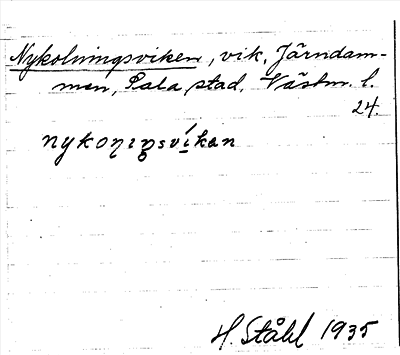 Nykolningsviken, vik, Järndam-
men, Sala stad. Västm. l.
24.
nykoηɪŋsvíkan
H. Ståhl 1935